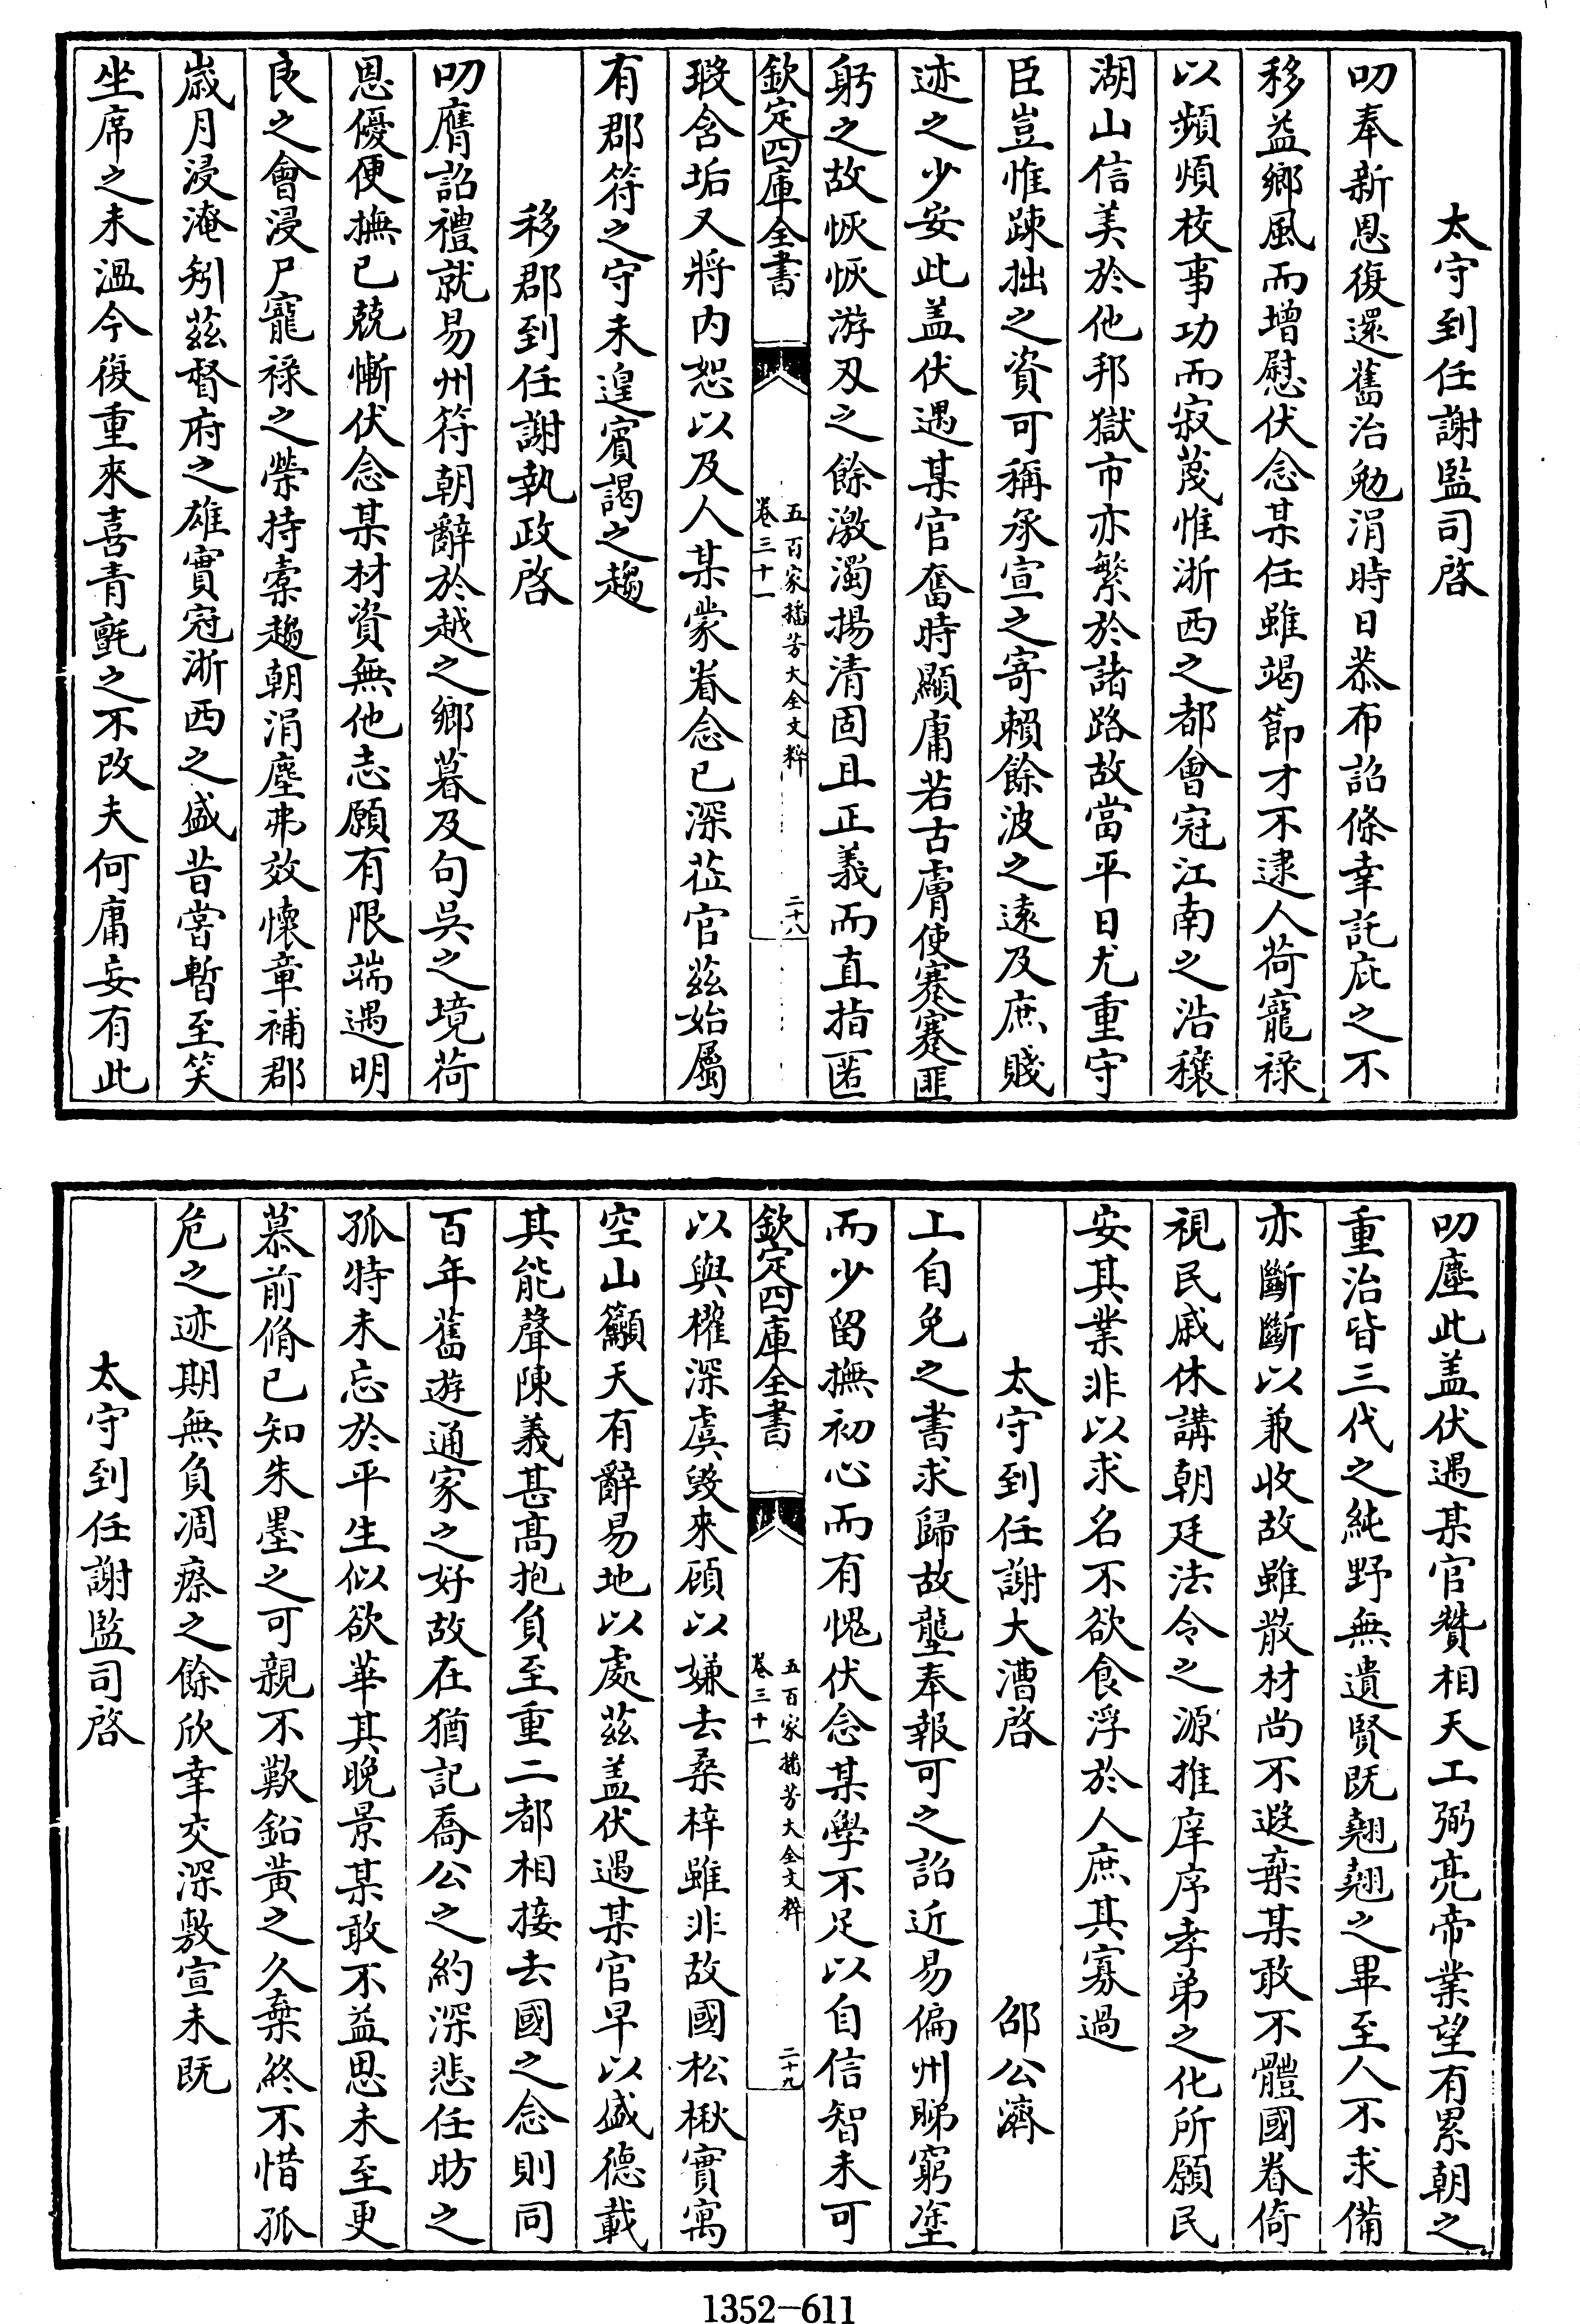 太守到任謝監司啓
叨奉新恩復還舊治勉涓時日恭布詔條幸託庇之不
移益鄉風而增慰伏念某任雖竭節才不逮人荷寵祿
以頻煩校事功而寂蔑惟浙西之都會冠江南之浩穰
湖山信美於他邦獄市亦繁於諸路故當平日尤重守
臣豈惟踈拙之資可稱承宣之寄賴餘波之遠及庶賤
迹之少安此盖伏遇某官奮時顯庸若古膚使蹇蹇匪
躬之故恢恢游刃之餘激濁揚清固且正義而直指匿
欽定四庫全書
五百家播芳大全文粹
卷三十一
二十八
瑕含垢又將内恕以及人某蒙眷念已深莅官茲始屬
有郡符之守未遑賓謁之趨
移郡到任謝執政啓
叨膺詔禮就易州符朝辭於越之鄉暮及句吳之境荷
恩優便撫已兢慚伏念某材資無他志願有限端遇明
良之會浸尸寵祿之榮持橐趨朝涓塵弗效懷章補郡
歳月浸淹矧茲督府之雄實冠浙西之盛昔嘗暫至笑
坐席之未温今復重來喜青氈之不改夫何庸妄有此
叨塵此盖伏遇某官贊相天工弼亮帝業望有累朝之
重治皆三代之純野無遺賢既翹翹之畢至人不求備
亦斷斷以兼收故雖散材尚不遐棄某敢不體國眷倚
視民戚休講朝廷法令之源推庠序孝弟之化所願民
安其業非以求名不欲食浮於人庶其寡過
太守到任謝大漕啓　邵公濟
上自免之書求歸故壟奉報可之詔近易偏州睇窮塗
而少留撫初心而有愧伏念某學不足以自信智未可
欽定四庫全書
五百家播芳大全文粹
卷三十一
二十九
以與權深虞毀來顧以嫌去桑梓雖非故國松楸實寓
空山籲天有辭易地以處茲盖伏遇某官早以盛德載
其能聲陳義甚髙抱負至重二都相接去國之念則同
百年舊遊通家之好故在猶記喬公之約深悲任昉之
孤特未忘於平生似欲華其晚景某敢不益思未至更
慕前脩已知朱墨之可親不歎鉛黄之久棄終不惜孤
危之迹期無負凋瘵之餘欣幸交深敷宣未既
太守到任謝監司啓
1352—611